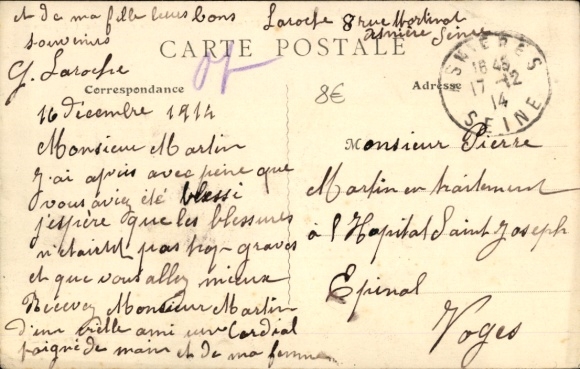 et de ma fille leurs bons
souvenirs
G. Laroche
Laroche 8 rue Mortinat
asnière Seine
CARTE POSTALE
Correspondance
Adresse
8€
ASNIERES
16 45
17 - 12
14
SEINE
16 decembre 1914
Monsieur Martin
J'ai apris avec peine que
vous aviez été blessé
j'espère que les blessures
n'etaient pas trop graves
et que vous allez mieux
Recevez Monsieur Martin
d'un vielle ami une Cordial
poigné de main et de ma femme
Monsieur Pierre
Martin en traitement
à l'Hopital Saint Joseph
Epinal
Voges